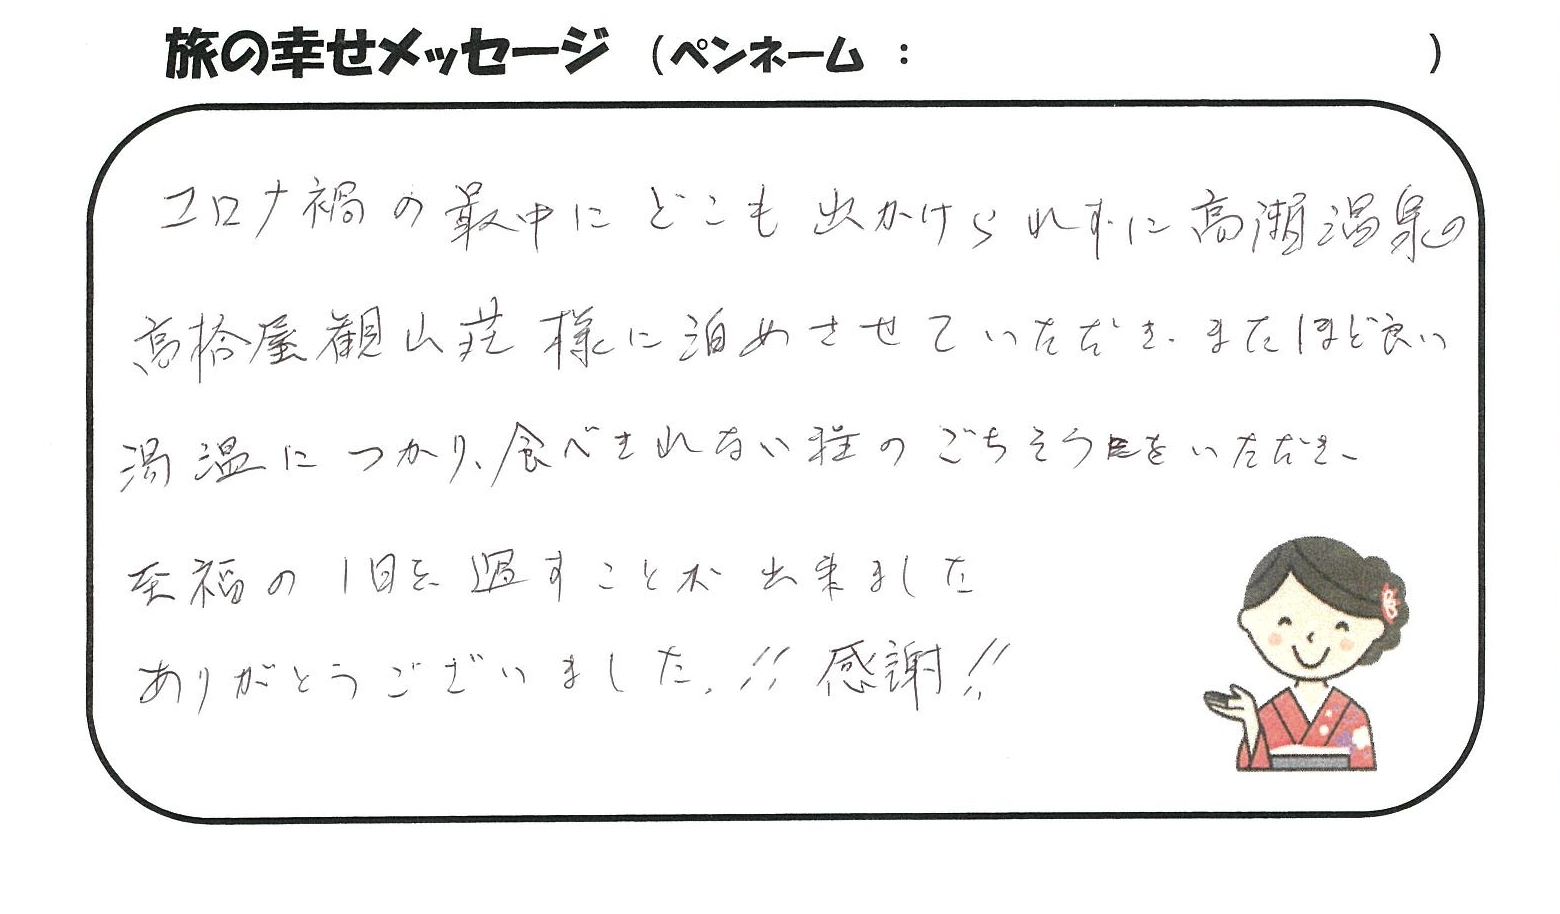 旅の幸せメッセージ (ペンネーム : )
コロナ禍の最中にどこも出かけられずに高瀬温泉の
高橋屋観山荘様に泊めさせていただき、またほど良い
湯温につかり、食べきれない程のごちそうをいただき、
至福の1日を過すことが出来ました
ありがとうございました。!! 感謝!!